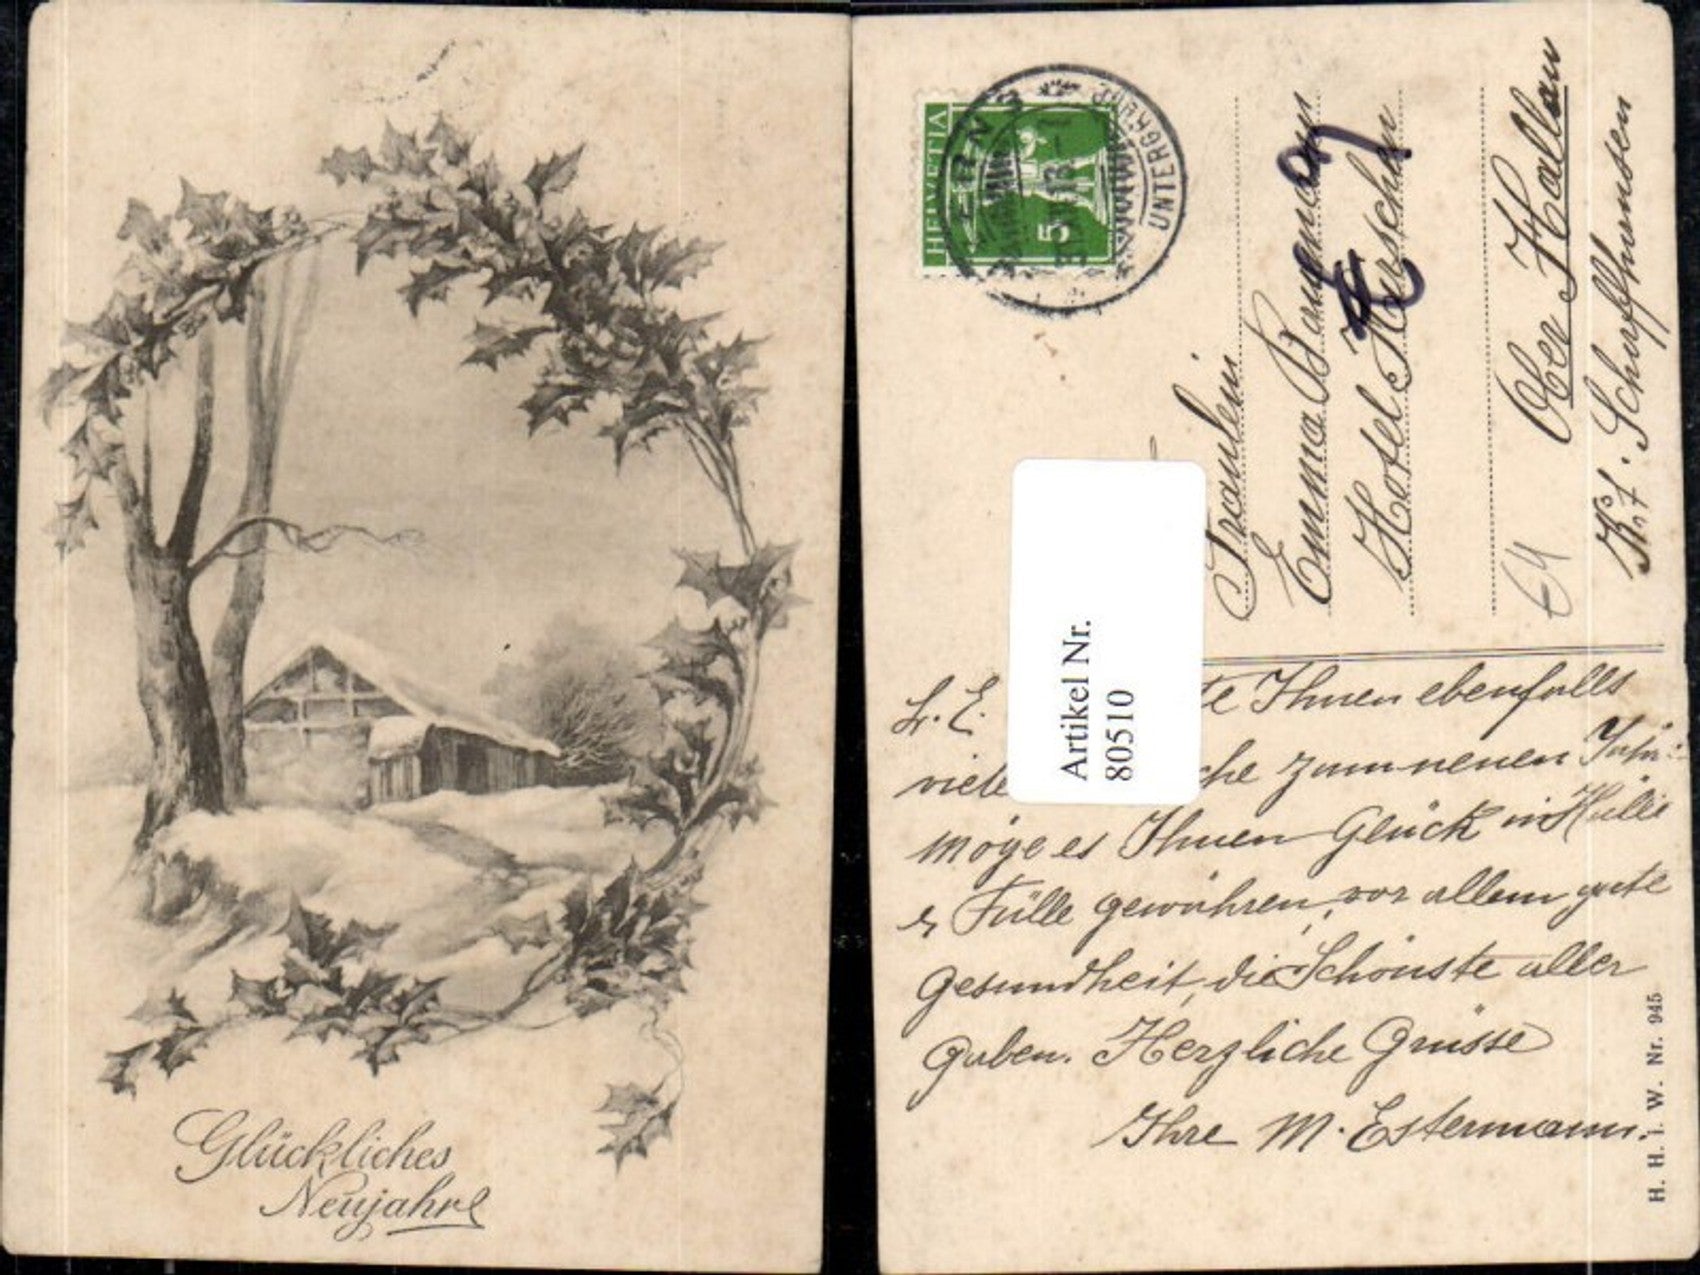 Glückliches
Neujahr
HELVETIA
5
LUZERN
UNTERGRUND
Fräulein
Emma Baumann
Hotel Hirschen
Ober Hallau
Kt. Schaffhausen
Artikel Nr.
80510
L. E. te Ihnen ebenfalls
viele che zum neuen Jahr.
möge es Ihnen Glück in Hülle
& Fülle gewähren, vor allem gute
Gesundheit, die Schönste aller
Gaben. Herzliche Grüsse
Ihre M. Estermann.
H. H. i. W. Nr. 945